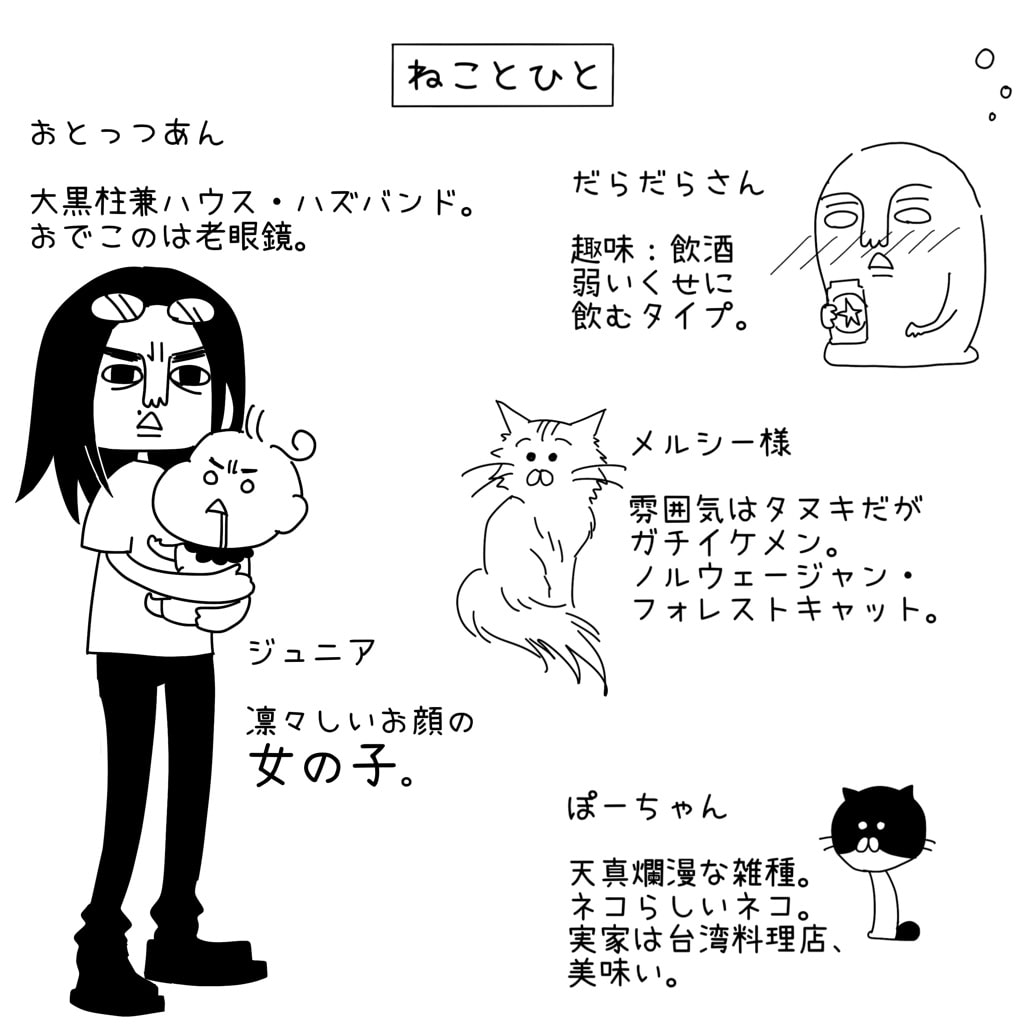 ねことひと
おとっつあん
大黒柱兼ハウス・ハズバンド。
おでこのは老眼鏡。
だらだらさん
趣味：飲酒
弱いくせに
飲むタイプ。
メルシー様
雰囲気はタヌキだが
ガチイケメン。
ノルウェージャン・
フォレストキャット。
ジュニア
凛々しいお顔の
女の子。
ぽーちゃん
天真爛漫な雑種。
ネコらしいネコ。
実家は台湾料理店、
美味い。